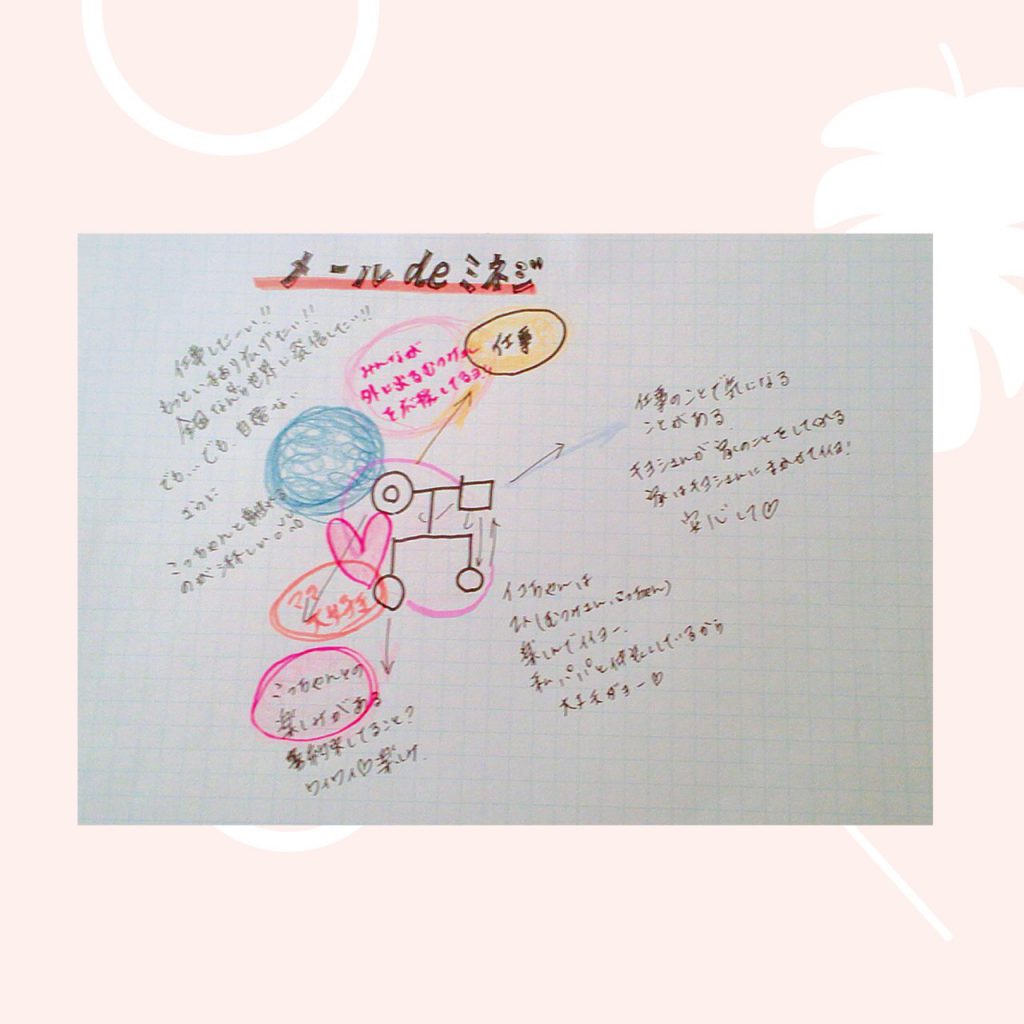 メール de ミネジ
仕事したーい!!
もっといまあり広げたい!!
全国なんなら世界に発信したい!!
でも…でも、自信ない
さらに
こっちゃんと離れる
のが淋しい
みんなが
外に出るむつみさん
を応援してるヨ
仕事
仕事のことで気になる
ことがある
チヨさんが家のことをしてくれる
家はチヨさんにまかせてイイヨ!
安心して♡
ママ
大好き
こっちゃんとの
楽しみがある
約束してること?
ワイワイ♡楽しみ
イコちゃんは
2人(むつみさん、こっちゃん)
楽しんでイイヨー。
私パパと仲良くしているから
大丈夫ダヨー♡